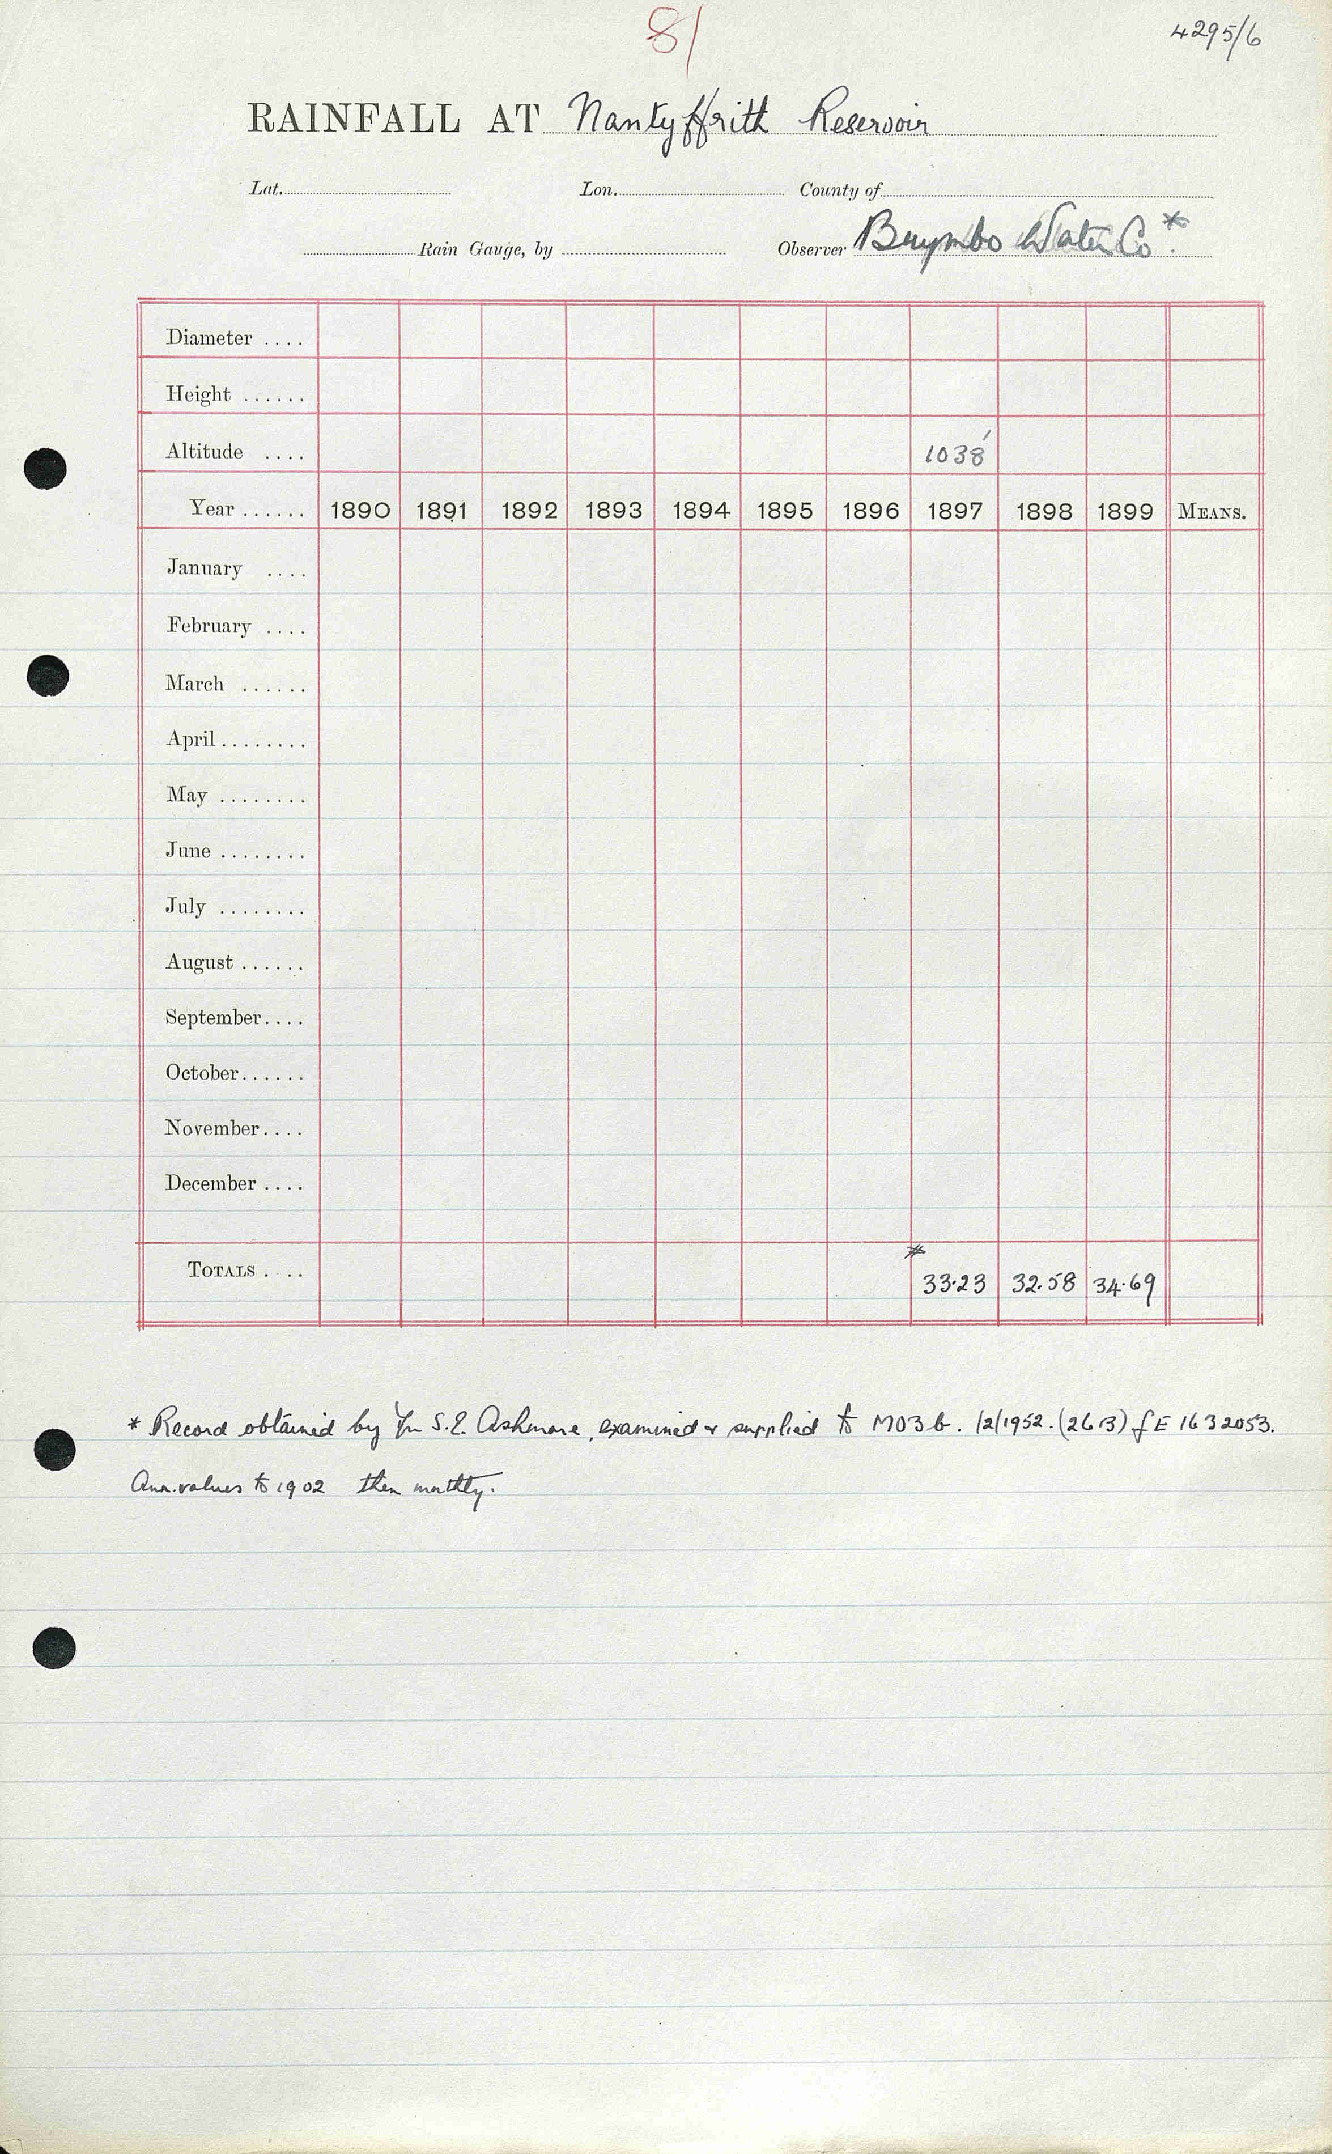 81
4295/6
RAINFALL AT Nantyffrith Reservoir
Lat. Lon. County of
Rain Gauge, by Observer Brymbo Water Co.*
Diameter ....
Height ......
Altitude .... 1038'
Year ...... 1890 1891 1892 1893 1894 1895 1896 1897 1898 1899 MEANS.
January ....
February ....
March ......
April ........
May ........
June ........
July ........
August ......
September....
October......
November....
December ....
*
TOTALS .... 33.23 32.58 34.69
* Record obtained by Mr S.E. Ashmore, examined & supplied to MO3b. 12/1952. (2613) f E 1632053.
Ann. values to 1902 then monthly.